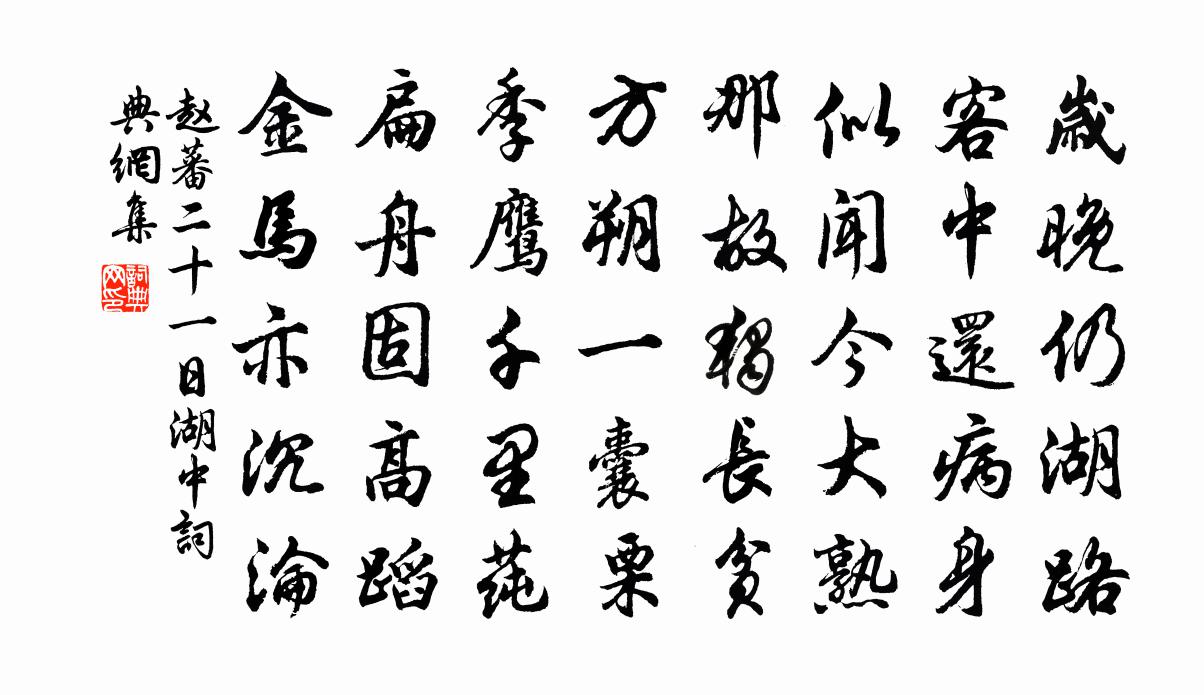 歲晚仍湖路
客中還病身
似聞今大熟
那故獨長貧
方朔一囊粟
季鷹千里蒓
扁舟固高蹈
金馬亦沉淪
赵蕃二十一日湖中詞
典網集
詞典
网印